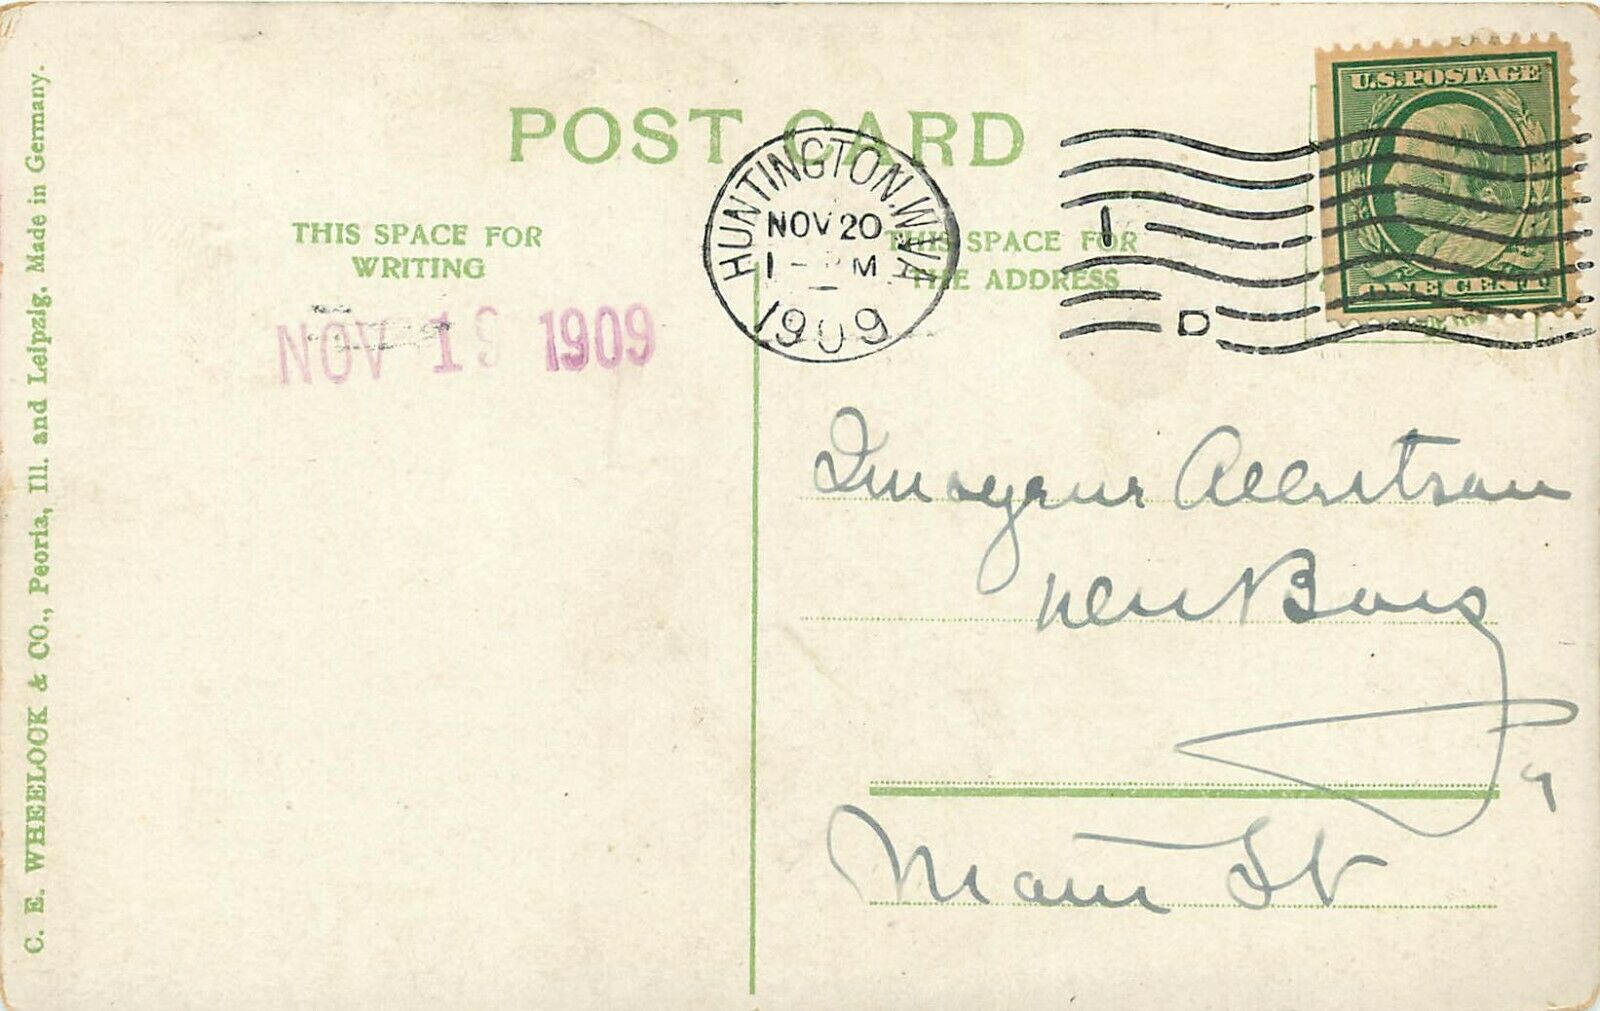 POST CARD
THIS SPACE FOR
WRITING
THIS SPACE FOR
THE ADDRESS
HUNTINGTON, W.VA
NOV 20
1 - M
1909
1
D
U.S.POSTAGE
ONE CENT
NOV 19 1909
Imogene Albertson
New Bern
Main St
C. E. WHEELOCK & CO., Peoria, Ill. and Leipzig. Made in Germany.